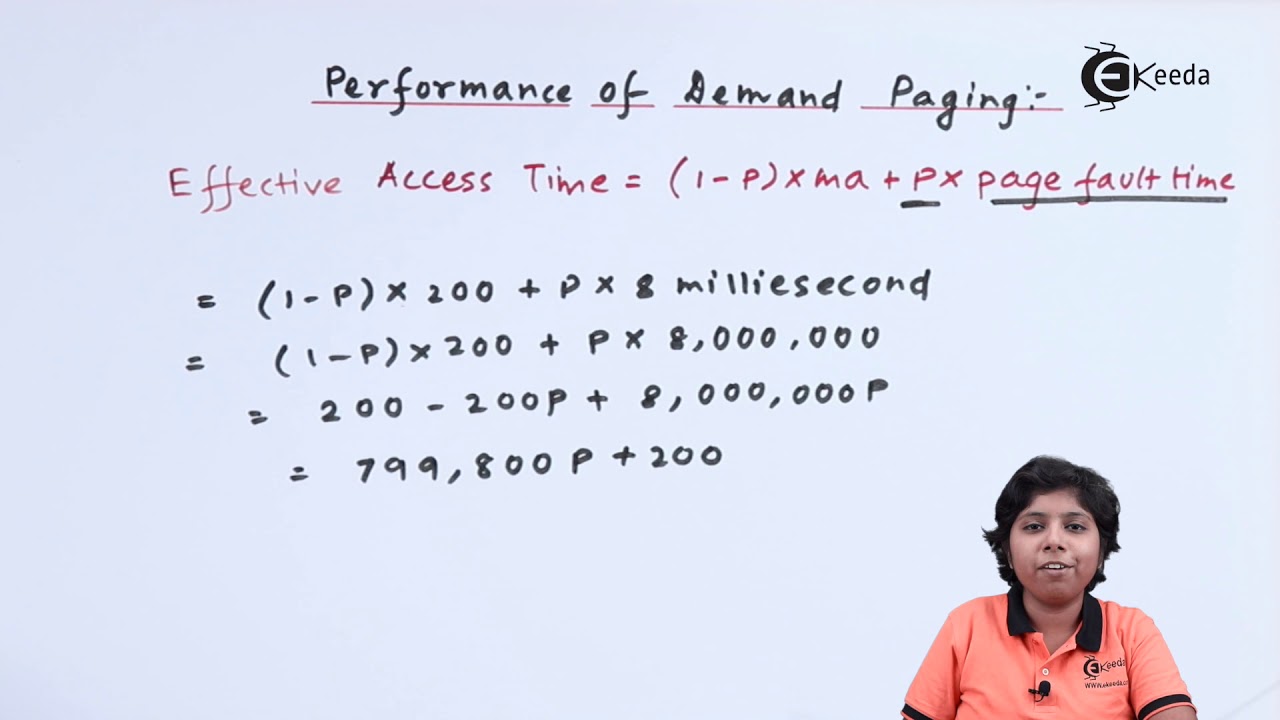 Performance of Demand Paging:-
EKeeda
Effective Access Time = (1-P)×ma + P× page fault time
= (1-P)× 200 + P × 8 milliesecond
= (1-P)×200 + P× 8,000,000
= 200 - 200P + 8,000,000P
= 799,800P + 200
EKeeda
www.ekeeda.com